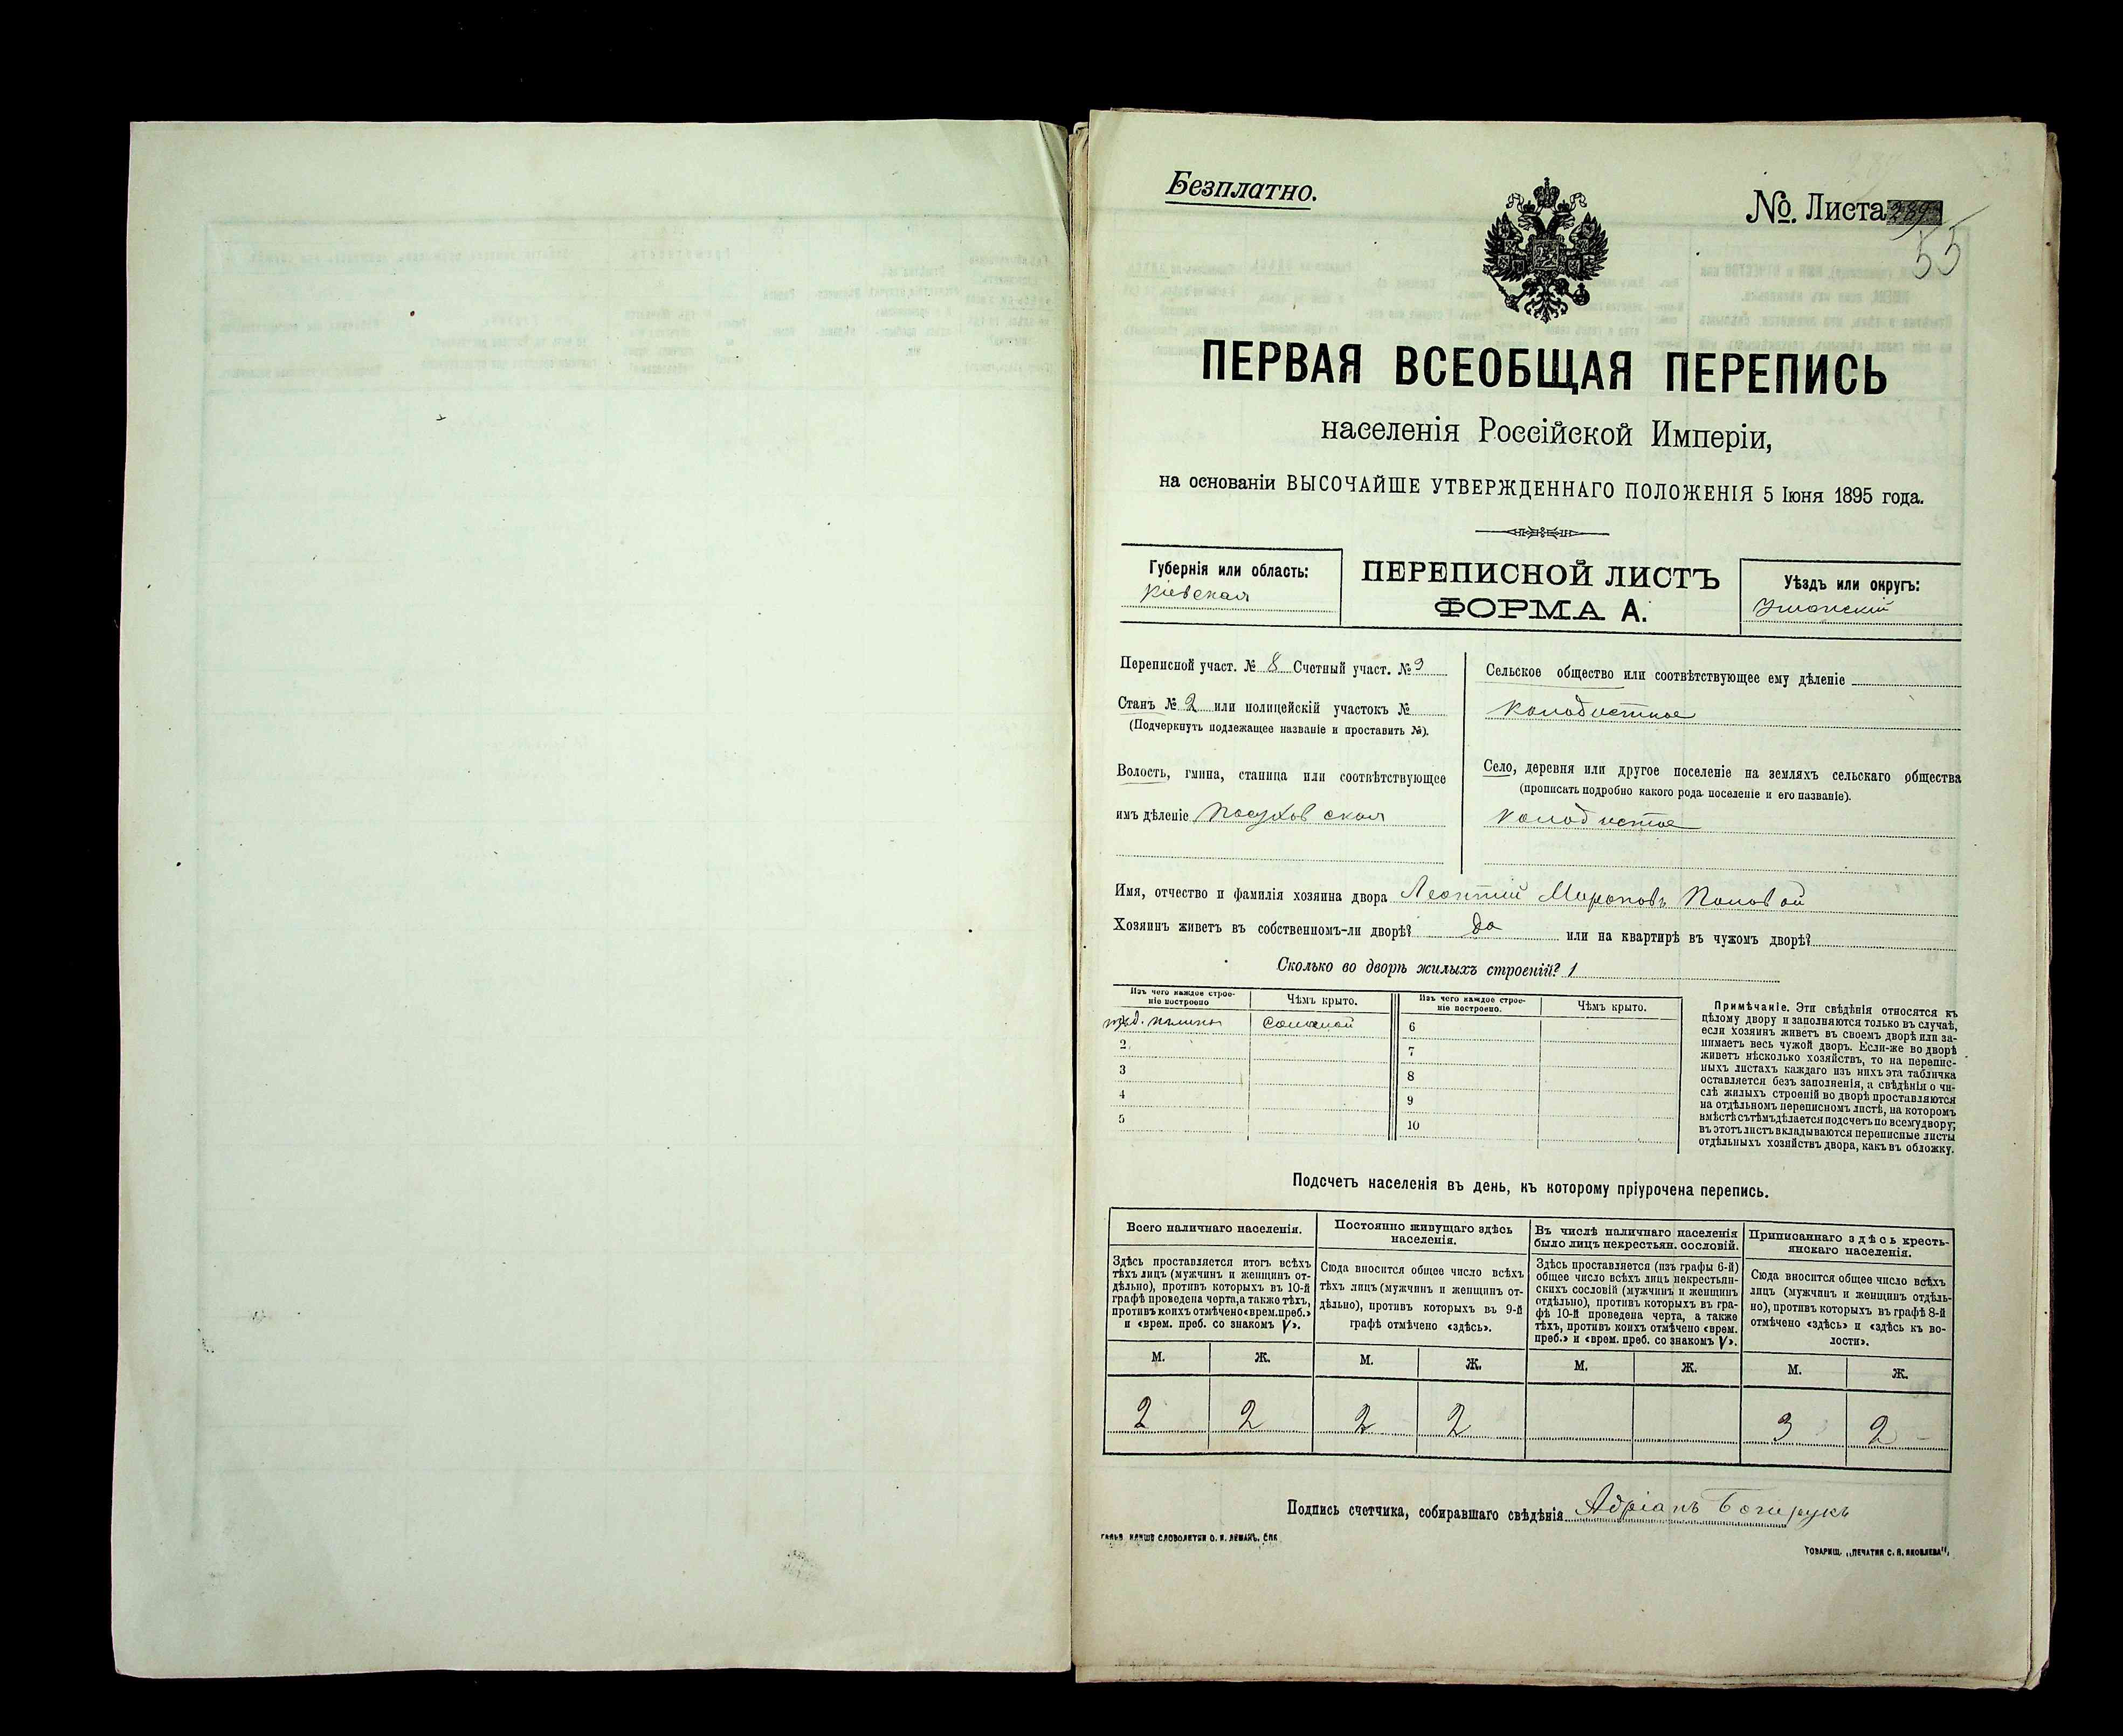 Безплатно.
№. Листа 289
55
ПЕРВАЯ ВСЕОБЩАЯ ПЕРЕПИСЬ
населенія Россійской Имперіи,
на основаніи ВЫСОЧАЙШЕ УТВЕРЖДЕННАГО ПОЛОЖЕНІЯ 5 Іюня 1895 года.
Губернія или область:
Кіевская
ПЕРЕПИСНОЙ ЛИСТЪ
ФОРМА А.
Уѣздъ или округъ:
Уманскій
Переписной участ. № 8 Счетный участ. № 9
Станъ № 2 или полицейскій участокъ №
(Подчеркнуть подлежащее названіе и проставить №).
Волость, гмина, станица или соотвѣтствующее
имъ дѣленіе Посуховская
Сельское общество или соотвѣтствующее ему дѣленіе
Колодистое
Село, деревня или другое поселеніе на земляхъ сельскаго общества
(прописать подробно какого рода поселеніе и его названіе).
Колодистое
Имя, отчество и фамилія хозяина двора Леонтій Мироновъ
Хозяинъ живетъ въ собственномъ-ли дворѣ? да или на квартирѣ въ чужомъ дворѣ?
Сколько во дворѣ жилыхъ строеній? 1
Изъ чего каждое строе-
ніе построено
Чѣмъ крыто.
Изъ чего каждое строе-
ніе построено.
Чѣмъ крыто.
Соломой
2
3
4
5
6
7
8
9
10
Примѣчаніе. Эти свѣдѣнія относятся къ
цѣлому двору и заполняются только въ случаѣ,
если хозяинъ живетъ въ своемъ дворѣ или за-
нимаетъ весь чужой дворъ. Если-же во дворѣ
живетъ нѣсколько хозяйствъ, то на перепис-
ныхъ листахъ каждаго изъ нихъ эта табличка
оставляется безъ заполненія, а свѣдѣнія о чи-
слѣ жилыхъ строеній во дворѣ проставляются
на отдѣльномъ переписномъ листѣ, на которомъ
вмѣстѣ съ тѣмъ дѣлается подсчетъ по всему двору;
въ этотъ листъ вкладываются переписные листы
отдѣльныхъ хозяйствъ двора, какъ въ обложку.
Подсчетъ населенія въ день, къ которому пріурочена перепись.
Всего наличнаго населенія.
Здѣсь проставляется итогъ всѣхъ
тѣхъ лицъ (мужчинъ и женщинъ от-
дѣльно), противъ которыхъ въ 10-й
графѣ проведена черта, а также тѣхъ,
противъ коихъ отмѣчено «врем. преб.»
и «врем. преб. со знакомъ V».
Постоянно живущаго здѣсь
населенія.
Сюда вносится общее число всѣхъ
тѣхъ лицъ (мужчинъ и женщинъ от-
дѣльно), противъ которыхъ въ 9-й
графѣ отмѣчено «здѣсь».
Въ числѣ наличнаго населенія
было лицъ некрестьян. сословій.
Здѣсь проставляется (изъ графы 6-й)
общее число всѣхъ лицъ некрестьян-
скихъ сословій (мужчинъ и женщинъ
отдѣльно), противъ которыхъ въ гра-
фѣ 10-й проведена черта, а также
тѣхъ, противъ коихъ отмѣчено «врем.
преб.» и «врем. преб. со знакомъ V».
Приписаннаго здѣсь кресть-
янскаго населенія.
Сюда вносится общее число всѣхъ
лицъ (мужчинъ и женщинъ отдѣль-
но), противъ которыхъ въ графѣ 8-й
отмѣчено «здѣсь» и «здѣсь къ во-
лости».
М. Ж. М. Ж. М. Ж. М. Ж.
2 2 2 2 3 2
Подпись счетчика, собиравшаго свѣдѣнія Адріанъ
ТОВАРИЩ. „ПЕЧАТНЯ С. П. ЯКОВЛЕВА“.